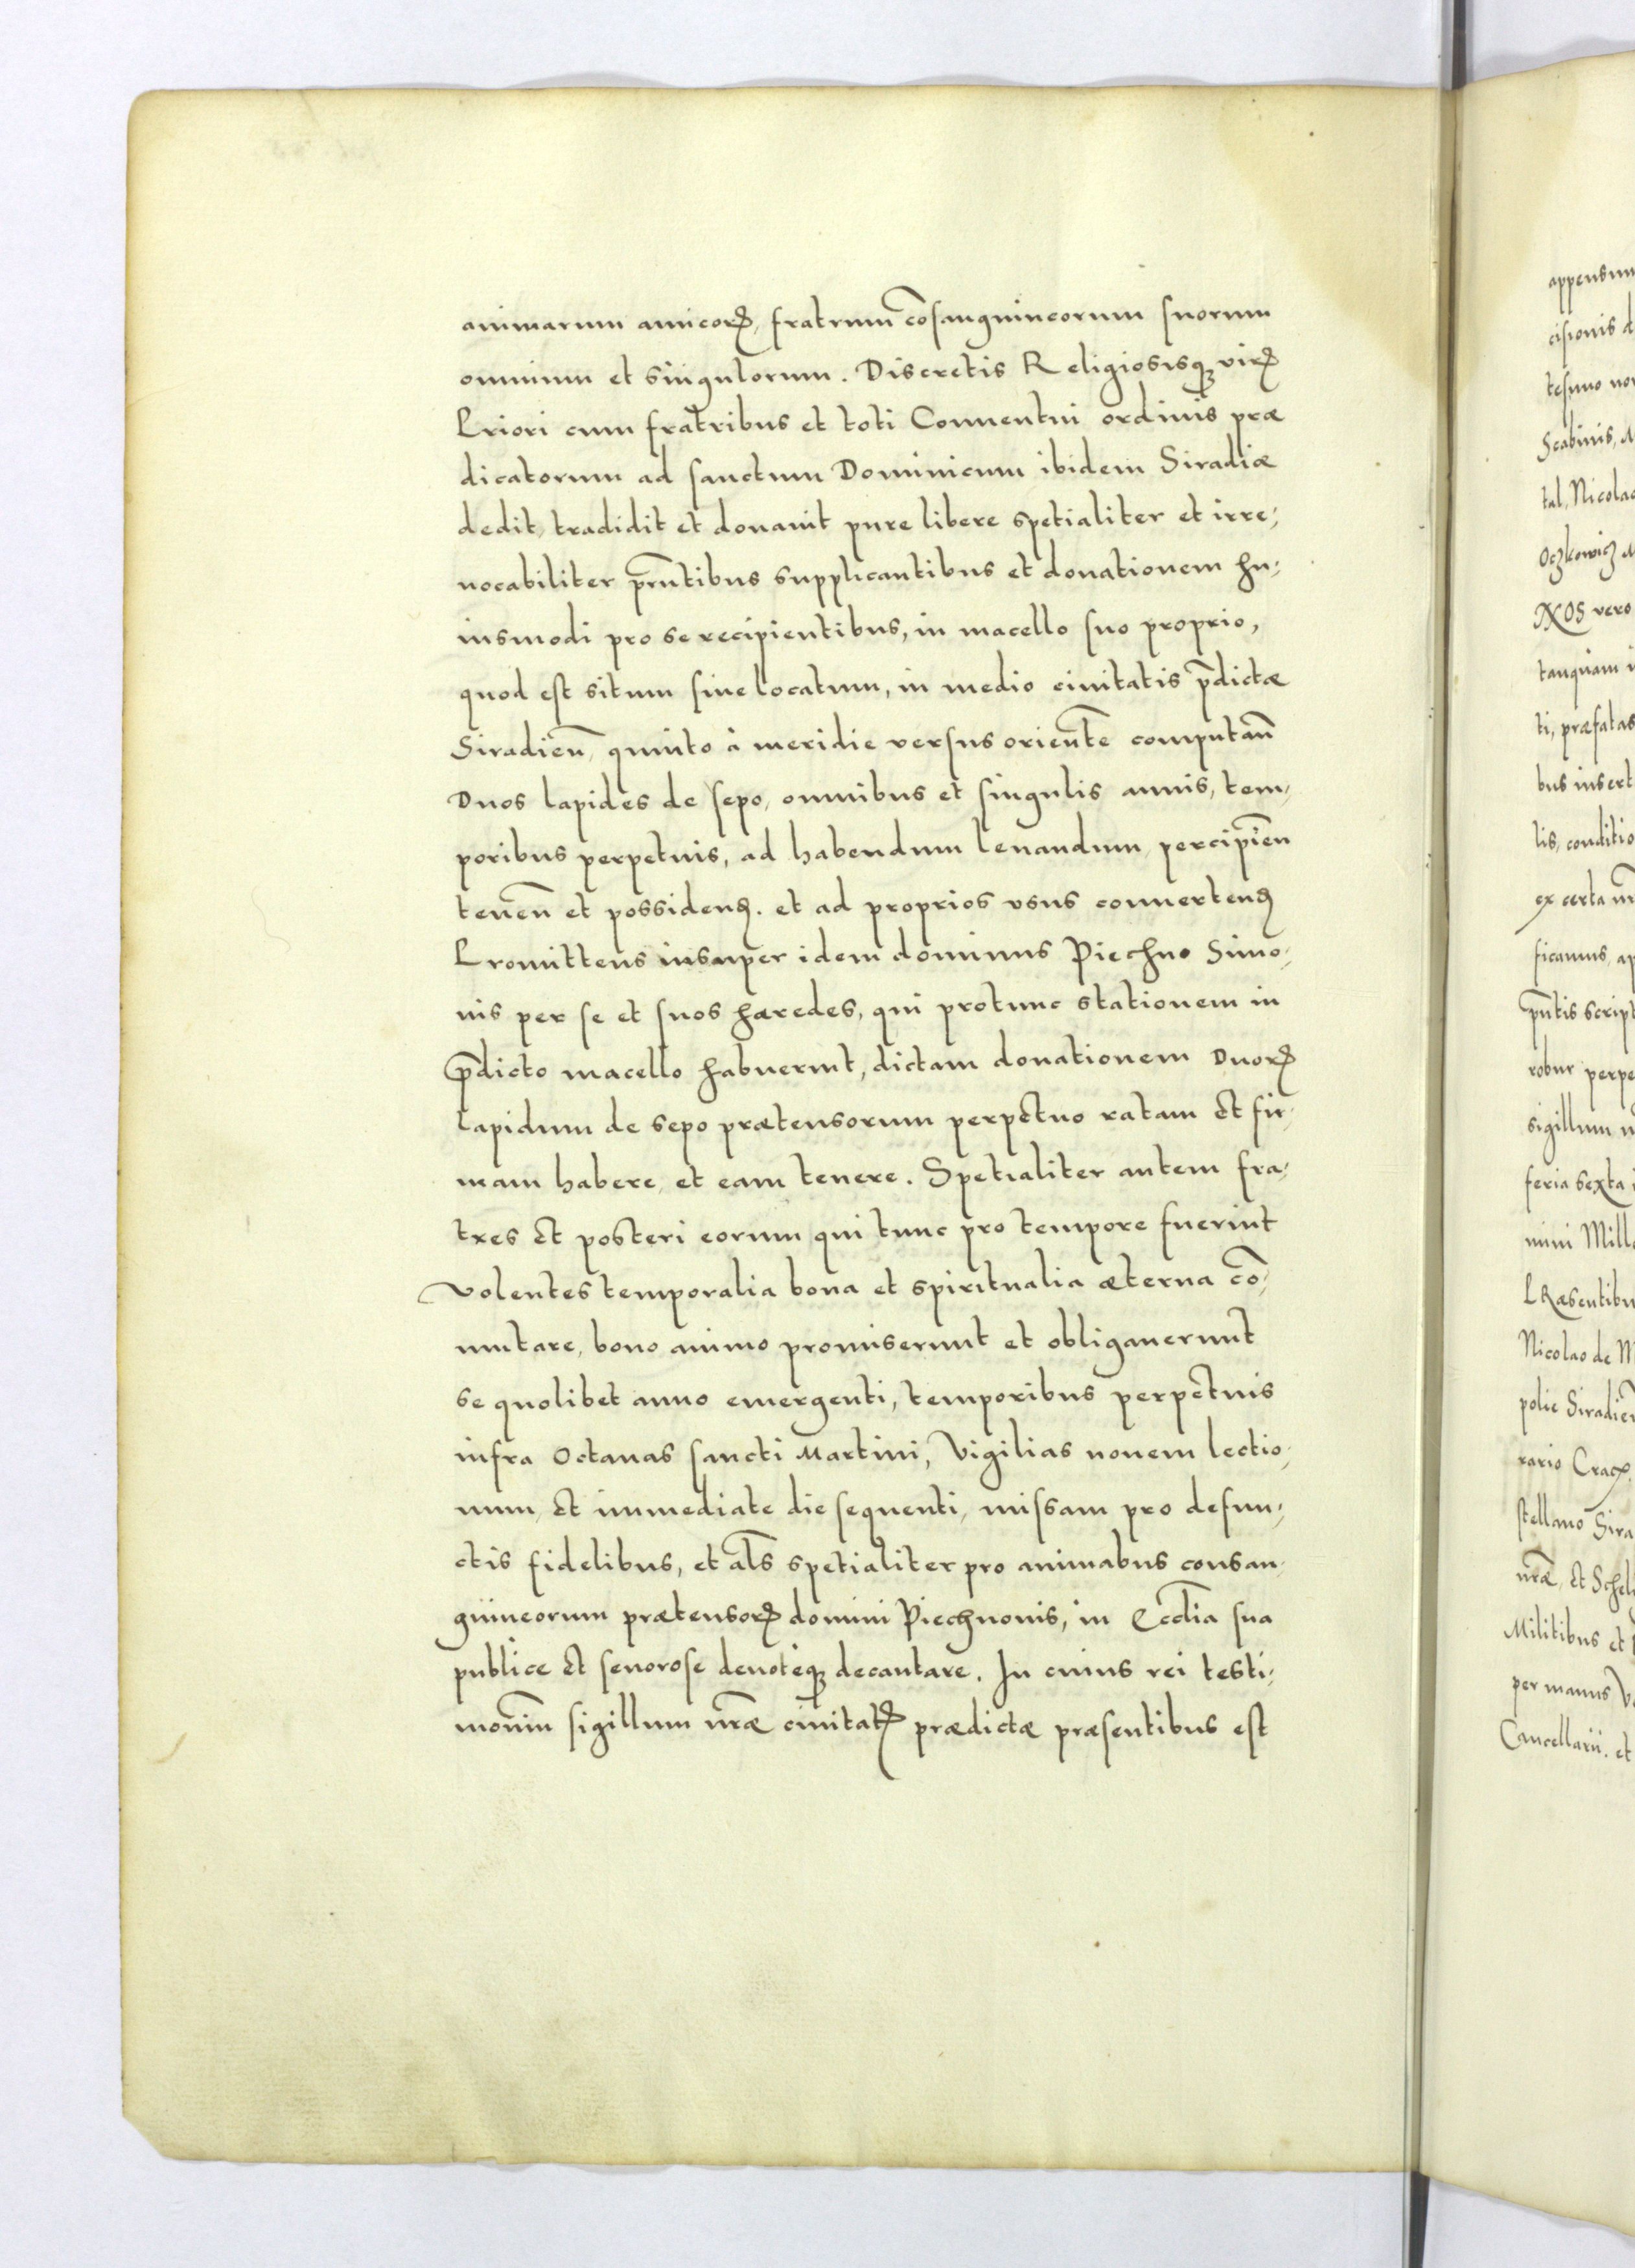 animarum amicorꝝ, fratrum cōsanguineorum suorum
omnium et singulorum. Discretis Religiosisqꝫ virꝭ
Priori cum fratribus et toti Conuentui ordinis præ
dicatorum ad sanctum Dominicum ibidem Siradiæ
dedit, tradidit et donauit pure libere spetialiter et irre,
uocabiliter pn̄tibus supplicantibus et donationem hu,
iusmodi pro se recipientibus, in macello suo proprio,
quod est situm siue locatum, in medio ciuitatis p̄dictæ
Siradien̄, quinto à meridie versus orientē computan̄
Duos lapides de sepo, omnibus et singulis annis, tem,
poribus perpetuis, ad habendum leuandum, percipien̄
tenen̄ et possidenꝭ. et ad proprios vsus conuertenꝭ
Promittens insuper idem dominus Piechno Simo,
nis per se et suos hæredes, qui protunc stationem in
p̄dicto macello habuerint, dictam donationem Duorꝝ
lapidum de sepo prætensorum perpetuo ratam et fir,
mam habere, et eam tenere. Spetialiter autem fra,
tres et posteri eorum qui tunc pro tempore fuerint
volentes temporalia bona et spiritualia æterna cō,
mutare, bono animo promiserunt et obligauerunt
se quolibet anno emergenti, temporibus perpetuis
infra Octauas sancti Martini, Vigilias nouem lectio,
num, et immediate die sequenti, missam pro defun,
ctis fidelibus, et al̄s spetialiter pro animabus consan,
guineorum prætensorꝝ domini Piechnonis, in Eccl̄ia sua
publice et senorose deuoteqꝫ decantare. In cuius rei testi,
moniū sigillum nr̄æ ciuitatꝭ prædictæ præsentibus est
appensum
cisionis d
Scabinis, M
tal, Nicolao
NOS vero
tanquam i
ti, præfatas
bus insert
lis, conditio
ex certa
ficamus, ap
pn̄tis script
robur perpe
sigillum n
feria sexta i
mini Mill
PRæsentibu
Nicolao de M
polie Siradien
rario Crac
stellano Sira
nr̄æ, et Schel
Militibus et
per manus V
Cancellarii. et